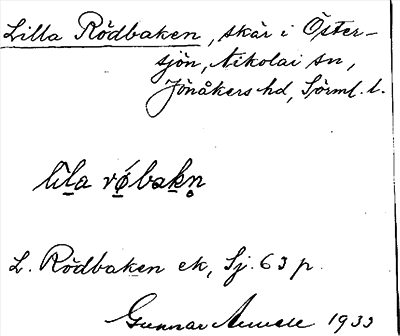 Lilla Rödbaken, skär i Öster-
sjön, Nikolai sn,
Jönåkers hd, Sörml. l.
lila røbakn
L. Rödbaken ek, Sj. 63 p.
Gunnar 1933